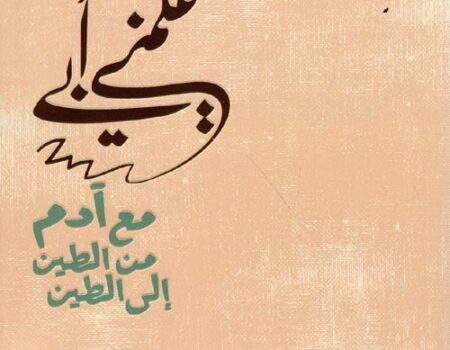 علمني أبي
مع آدم
من الطين
إلى الطين